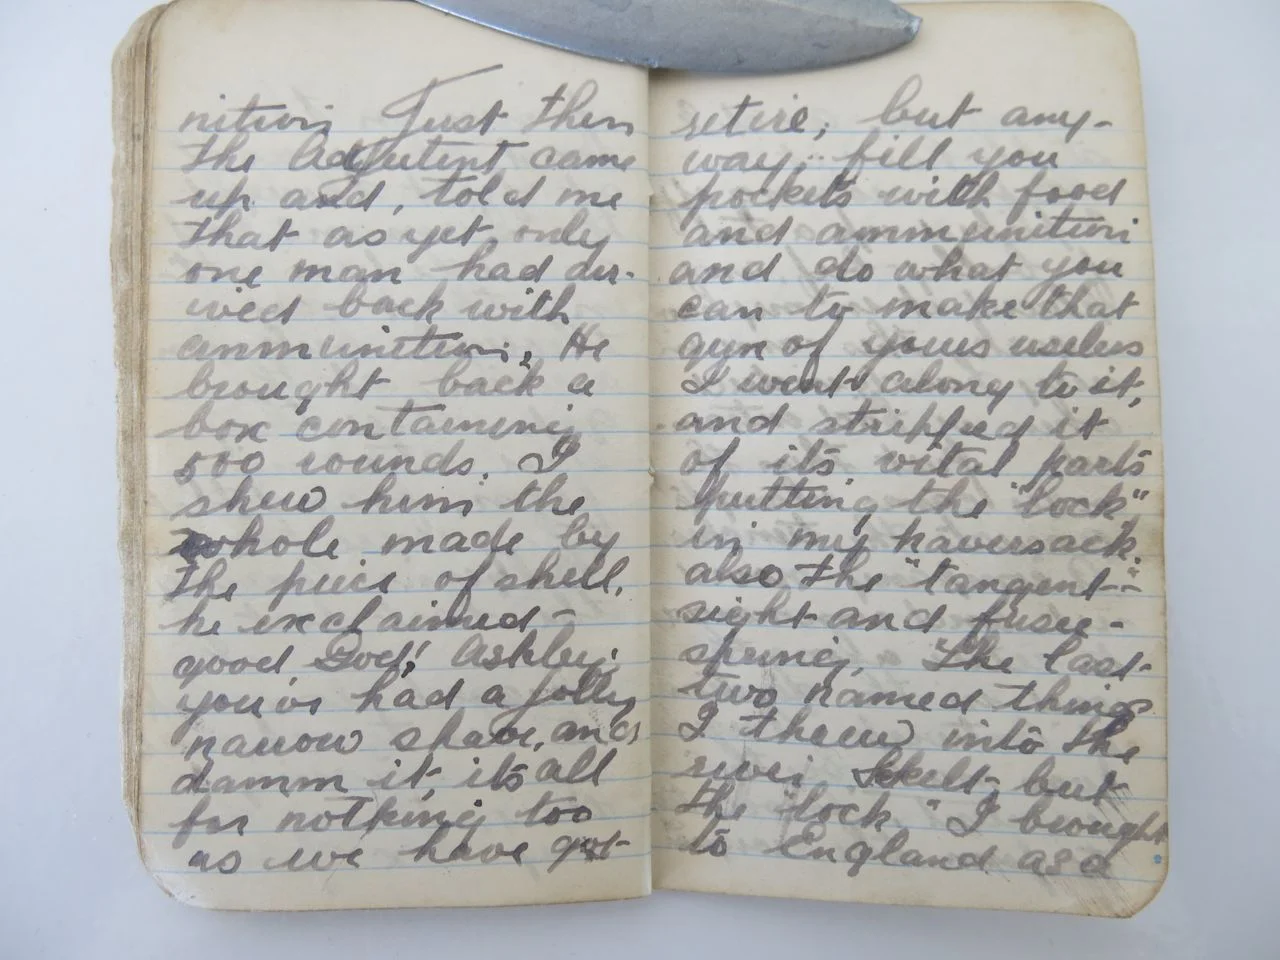 nition Just then
the Adjutent came
up and, told me
that as yet only
one man had arr-
ived back with
ammunition, He
brought back a
box containing
500 rounds. I
shew him the
whole made by
the piece of shell,
he exclaimed -
good God! Ashley.
you've had a jolly
narrow shave, and
damm it, it's all
for nothing too
as we have got
retire, but any-
way, fill you
pockets with food
and ammunition
and do what you
can to make that
gun of yours useless
I went along to it,
and stripped it
of it's vital parts
putting the "lock"
in my haversack.
also the "tangent-"
sight and fusee-
spring, The last
two named things
I threw into the
river but
the "lock" I brought
to England as a